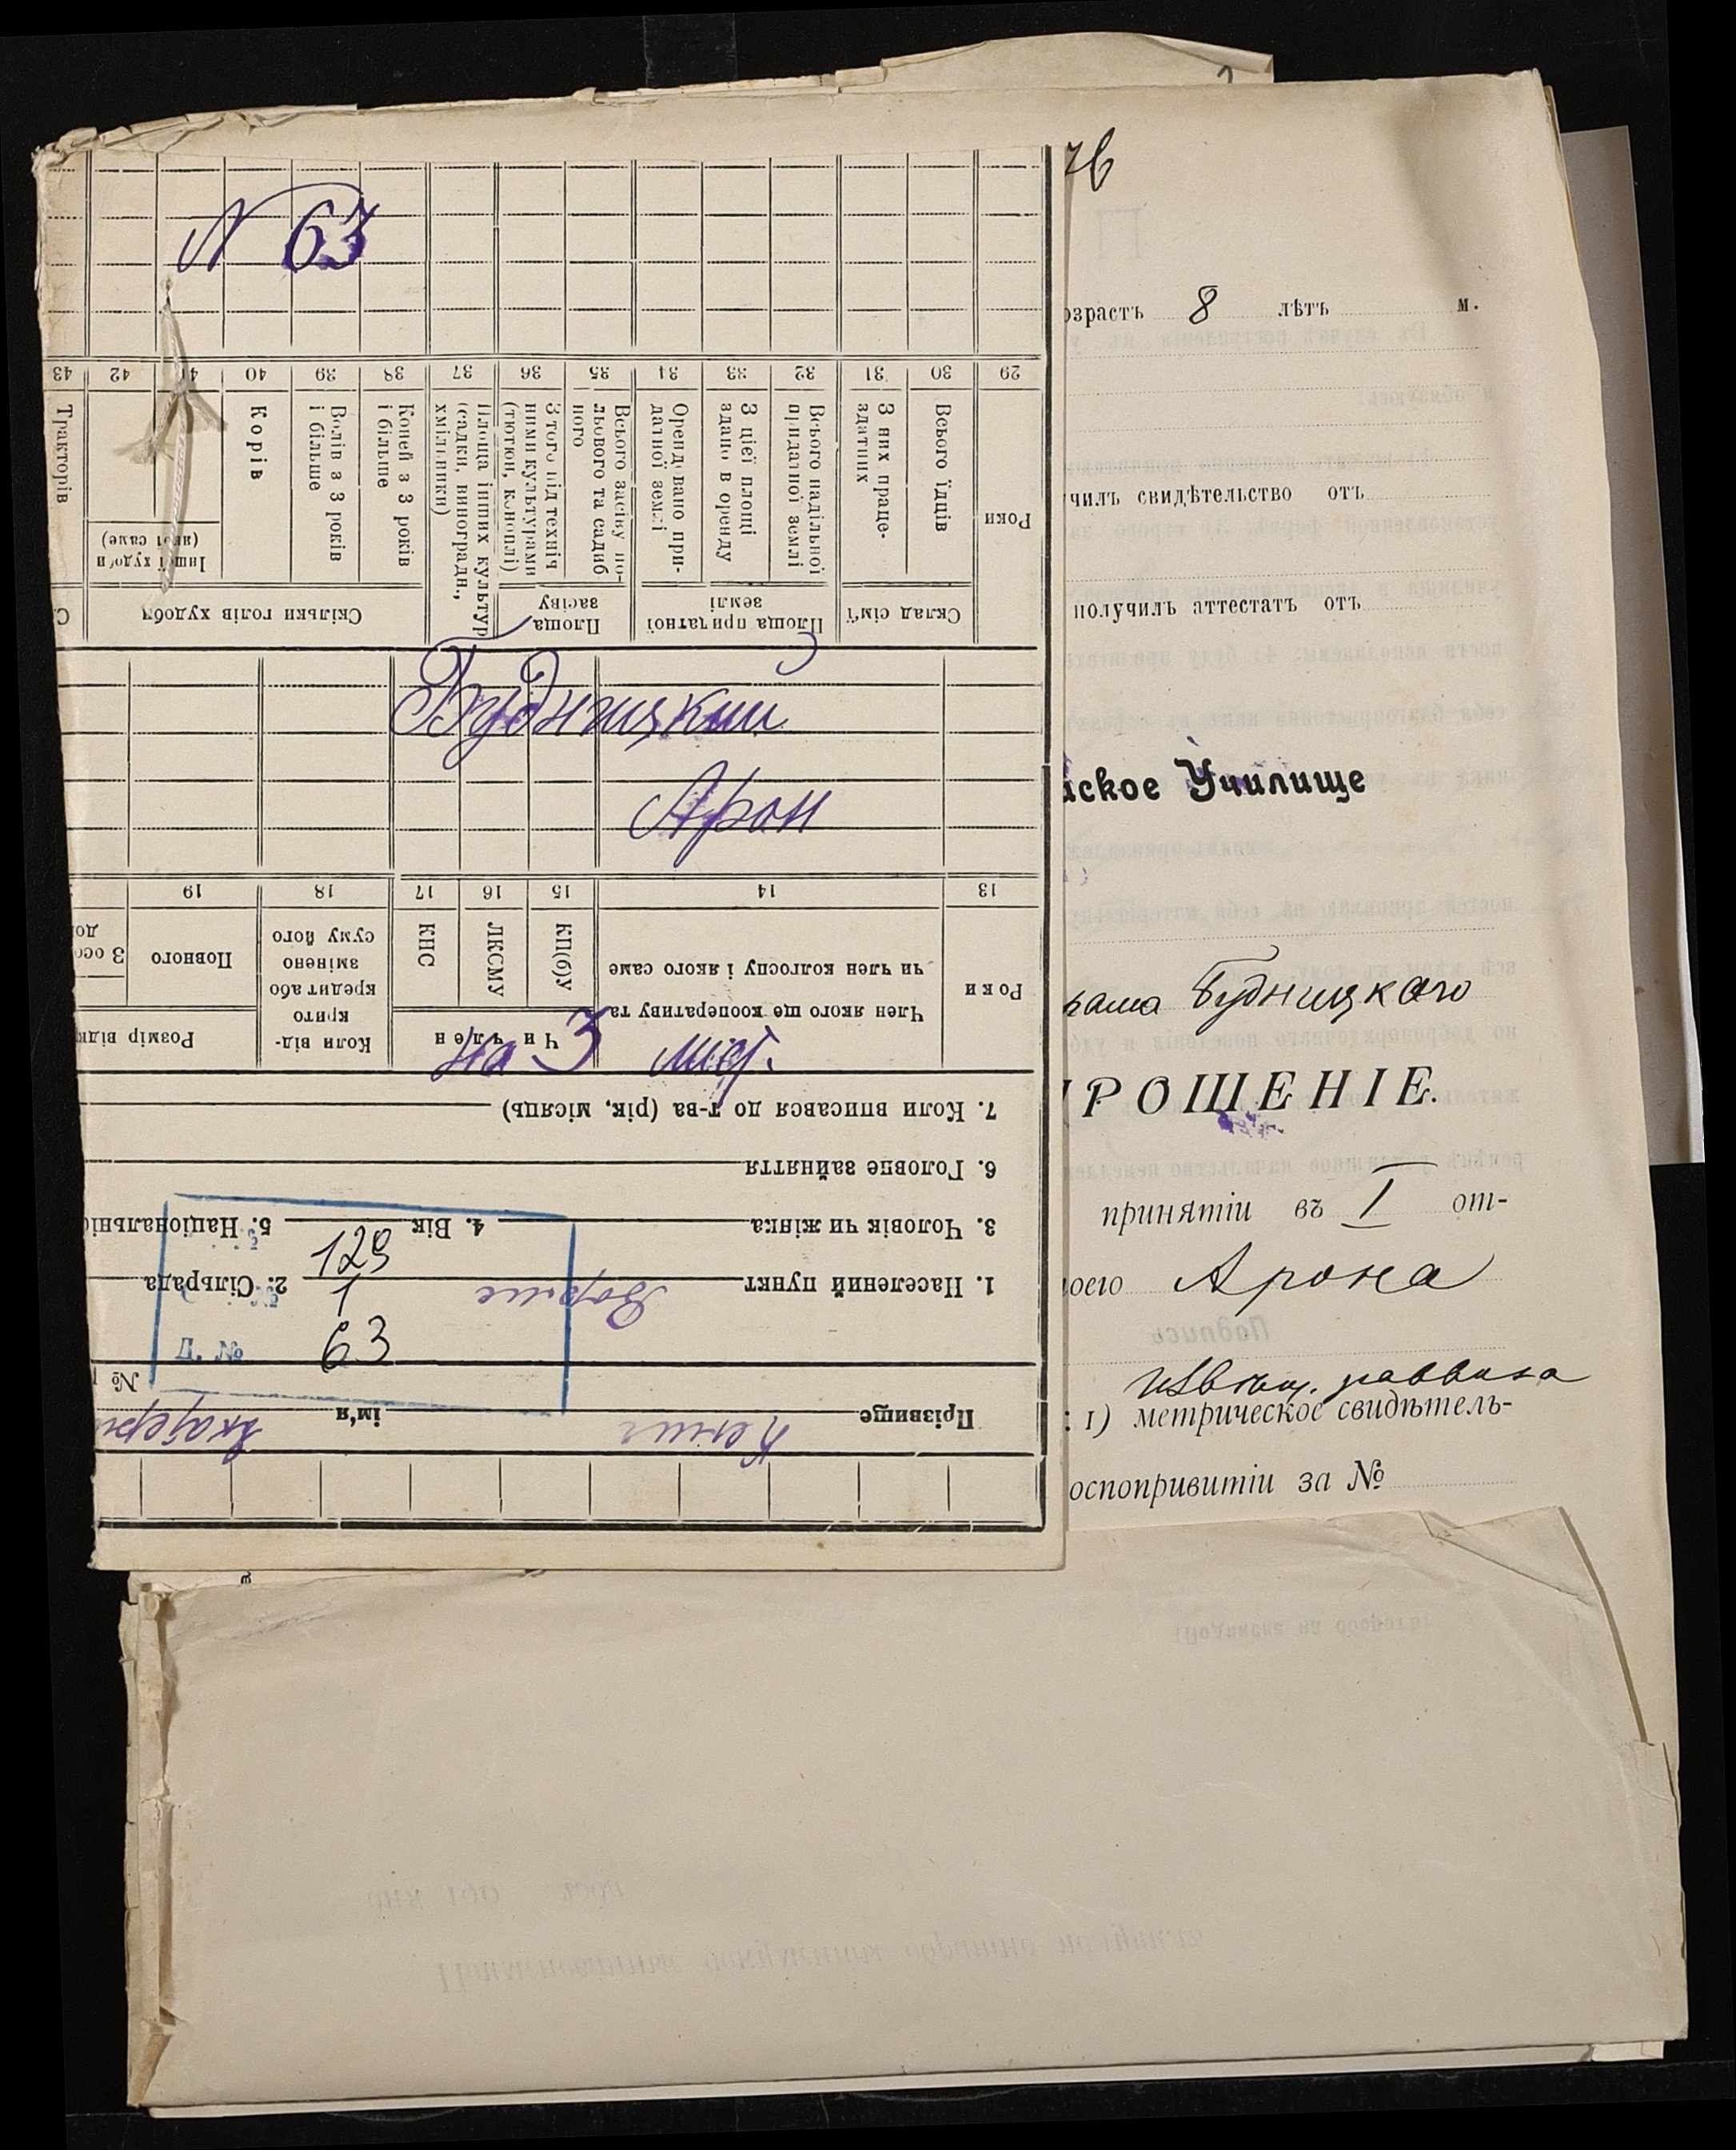 N 63
Будницкий
Арон
на 3 мест.
Д. №
63
1
129
29
30
31
32
33
34
35
36
37
38
39
40
42
43
Роки
Всього їдців
З них праце-
здатних
Всього надільної
придатної землі
З цієї площі
здано в оренду
Орендовано при-
датної землі
Всього засіву по-
льового та садиб
ного
З того під техніч
ними культурами
(тютюн, коноплі)
Площа інших культур
(садки, виноградн.,
хмільники)
Коней з 3 років
і більше
Волів з 3 років
і більше
Корів
Іншої худоби
(якої саме)
Тракторів
Склад сім'ї
Площа придатної
землі
Площа
засіву
Скільки голів худоби
13
14
15
16
17
18
19
Роки
Член якого ще кооперативу та
чи член колгоспу і якого саме
Чи член
КП(б)У
ЛКСМУ
КНС
Коли від-
крито
кредит або
змінено
суму його
Розмір відк
Повного
7. Коли вписався до т-ва (рік, місяць)
6. Головне зайняття
3. Чоловік чи жінка 4. Вік 5. Національніс
1. Населений пункт 2. Сільрада
Прізвище ім'я №
озрастъ 8 лѣтъ м.
чилъ свидѣтельство отъ
получилъ аттестатъ отъ
ское Училище
Будницкого
РОШЕНІЕ.
принятіи въ I от-
оего Арона
раввина
: 1) метрическое свидѣтель-
оспопривитіи за №
Подпись